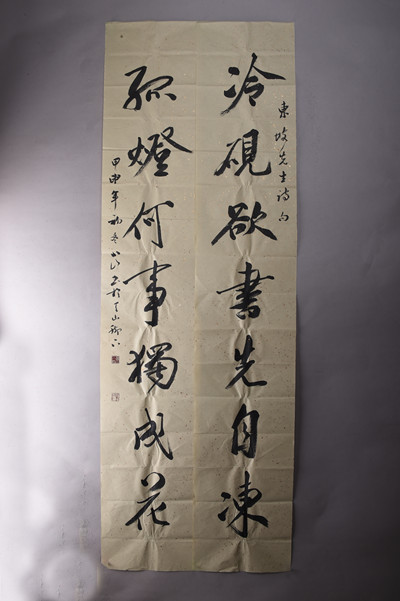 東坡先生詩句
冷硯欲書先自凍
孤燈何事獨成花
甲申年初冬